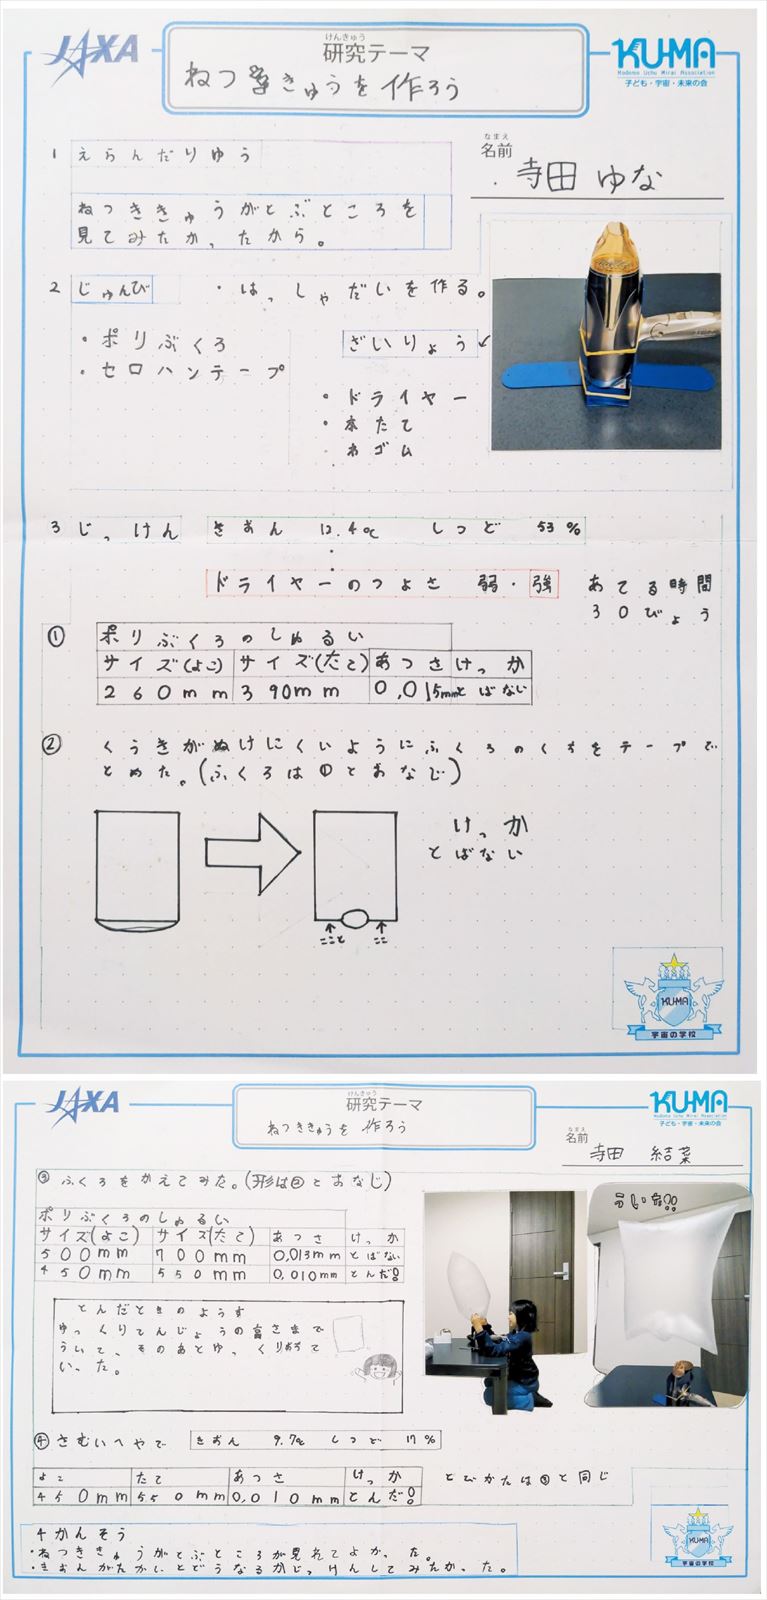 JAXA
けんきゅう
研究テーマ
ねつききゅうを作ろう
KU-MA
Kodomo Uchu Mirai Association
子ども・宇宙・未来の会
なまえ
名前
寺田 ゆな
1 えらんだりゆう
ねつききゅうがとぶところを
見てみたかったから。
2 じゅんび ・はっしゃだいを作る。
・ポリぶくろ
・セロハンテープ
ざいりょう
・ドライヤー
・本たて
わゴム
3 じっけん きおん 12.4℃ しつど 53%
ドライヤーのつよさ 弱・強
あてる時間
30びょう
①
ポリぶくろのしゅるい
サイズ(よこ) サイズ(たて) あつさ けっか
260mm 390mm 0,015mm とばない
② くうきがぬけにくいようにふくろのくちをテープで
とめた。(ふくろは①とおなじ)
けっか
とばない
ここと ここ
KUMA
宇宙の学校
JAXA
けんきゅう
研究テーマ
ねつききゅうを 作ろう
KU-MA
子ども・宇宙・未来の会
なまえ
名前
寺田 結菜
③ ふくろをかえてみた。(形は②とおなじ)
ポリぶくろのしゅるい
サイズ(よこ) サイズ(たて) あつさ けっか
500mm 700mm 0,013mm とばない
450mm 550mm 0,010mm とんだ!!
ういた!!
とんだときのようす
ゆっくりてんじょうの高さまで
ういて、そのあとゆっくりおちて
いった。
④ さむいへやで きおん 9.7℃ しつど 17%
よこ たて あつさ けっか
450mm 550mm 0,010mm とんだ!!
とびかたは③と同じ
4 かんそう
・ねつききゅうがとぶところが見れてよかった。
・きおんがたかいとどうなるかじっけんしてみたかった。
KUMA
宇宙の学校